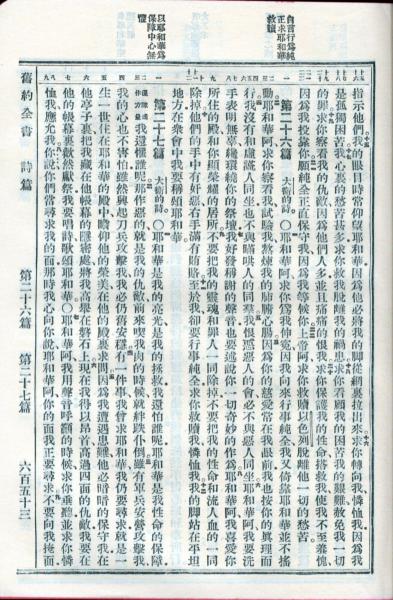 自言行爲純
正求耶和華
救贖
以耶和華爲
保障中心無
懼
指示他們我的眼目時常仰望耶和華因爲他必將我的脚從網裏拉出來求你轉向我憐恤我因爲我
是孤獨困苦我心裏的愁苦甚多求你救我脫離我的禍患求你看顧我的困苦我的艱難赦免我一切
的罪求你察看我的仇敵因爲他們人多並且痛痛的恨我求你保護我的性命搭救我使我不至羞愧
因爲我投靠你願純全正直保守我因爲我等候你上帝阿求你救贖以色列脫離他一切的愁苦
第二十六篇 大衛的詩○耶和華阿求你爲我伸冤因我向來行事純全我又倚靠耶和華並不搖
動耶和華阿求你察看我試驗我熬煉我的肺腑心腸因爲你的慈愛常在我眼前我也按你的眞理而
行我沒有和虛謊人同坐也不與瞞哄人的同羣我恨惡惡人的會必不與惡人同坐耶和華阿我要洗
手表明無辜纔環繞你的祭壇我好發稱謝的聲音也要述說你一切奇妙的作爲耶和華阿我喜愛你
所住的殿和你顯榮耀的居所不要把我的靈魂和罪人一同除掉不要把我的性命和流人血的一同
除掉他們的手中有奸惡右手滿有賄賂至於我卻要行事純全求你救贖我憐恤我我的脚站在平坦
地方在衆會中我要稱頌耶和華
第二十七篇 大衛的詩○耶和華是我的亮光是我的拯救我還怕誰呢耶和華是我性命的保障
保障或作力量我還懼誰呢那作惡的就是我的仇敵前來喫我肉的時候就絆跌仆倒雖有軍兵安營攻擊我
我的心也不害怕雖然興起刀兵攻擊我我必仍舊安穩有一件事我曾求耶和華我仍要尋求就是一
生一世住在耶和華的殿中瞻仰他的榮美在他的殿裏求問因爲我遭遇患難他必暗暗的保守我在
他亭子裏把我藏在他帳幕的隱密處將我高舉在磐石上現在我得以昂首高過四面的仇敵我要在
他的帳幕裏歡然獻祭我要唱詩歌頌耶和華○耶和華阿我用聲音呼籲的時候求你垂聽並求你憐
恤我應允我你說你們當尋求我的面那時我心向你說耶和華阿你的面我正要尋求不要向我掩面
舊約全書 詩篇 第二十六篇 第二十七篇 六百五十三